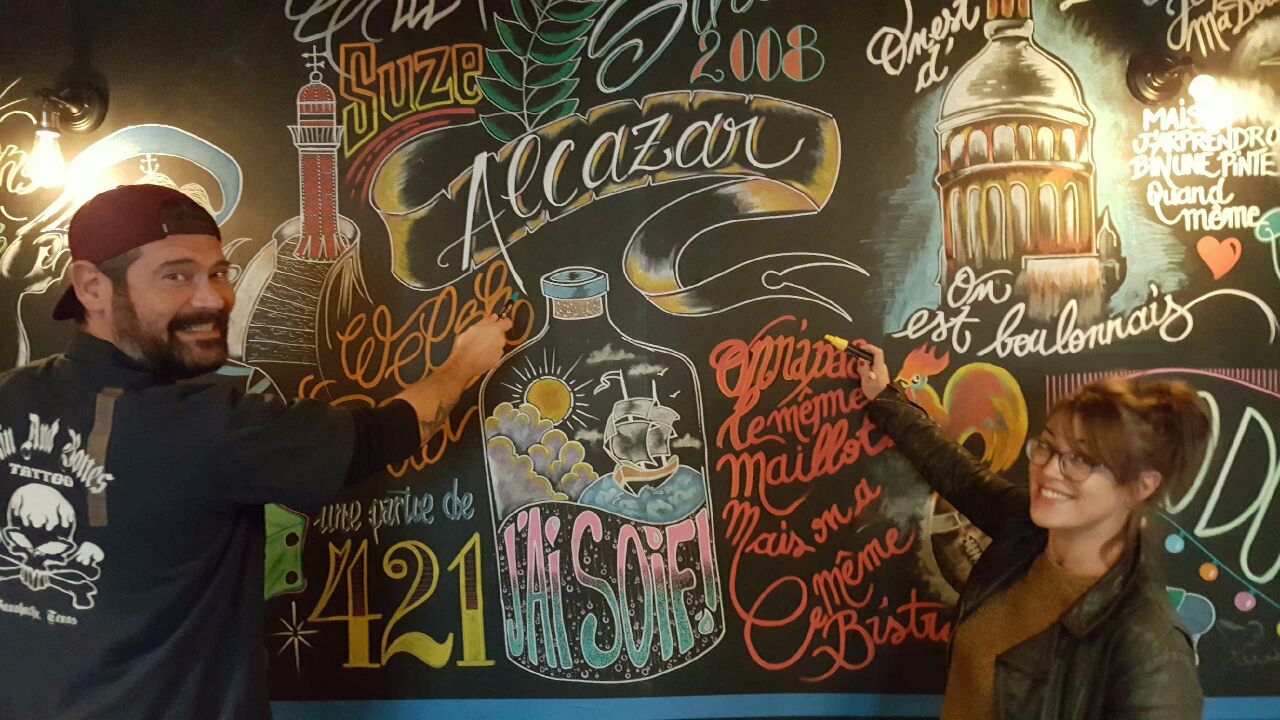 Suze
2008
Alcazar
On est
d'
Ma Do
MAIS
J'ARPRENDRO
BIN UNE PINTE
Quand
même
On
est boulonnais
On n'a pas
le même
Maillot
Mais on a
le même
Bistro
une partie de
421
J'AI SOIF!
And Bones
TATTOO
Texas